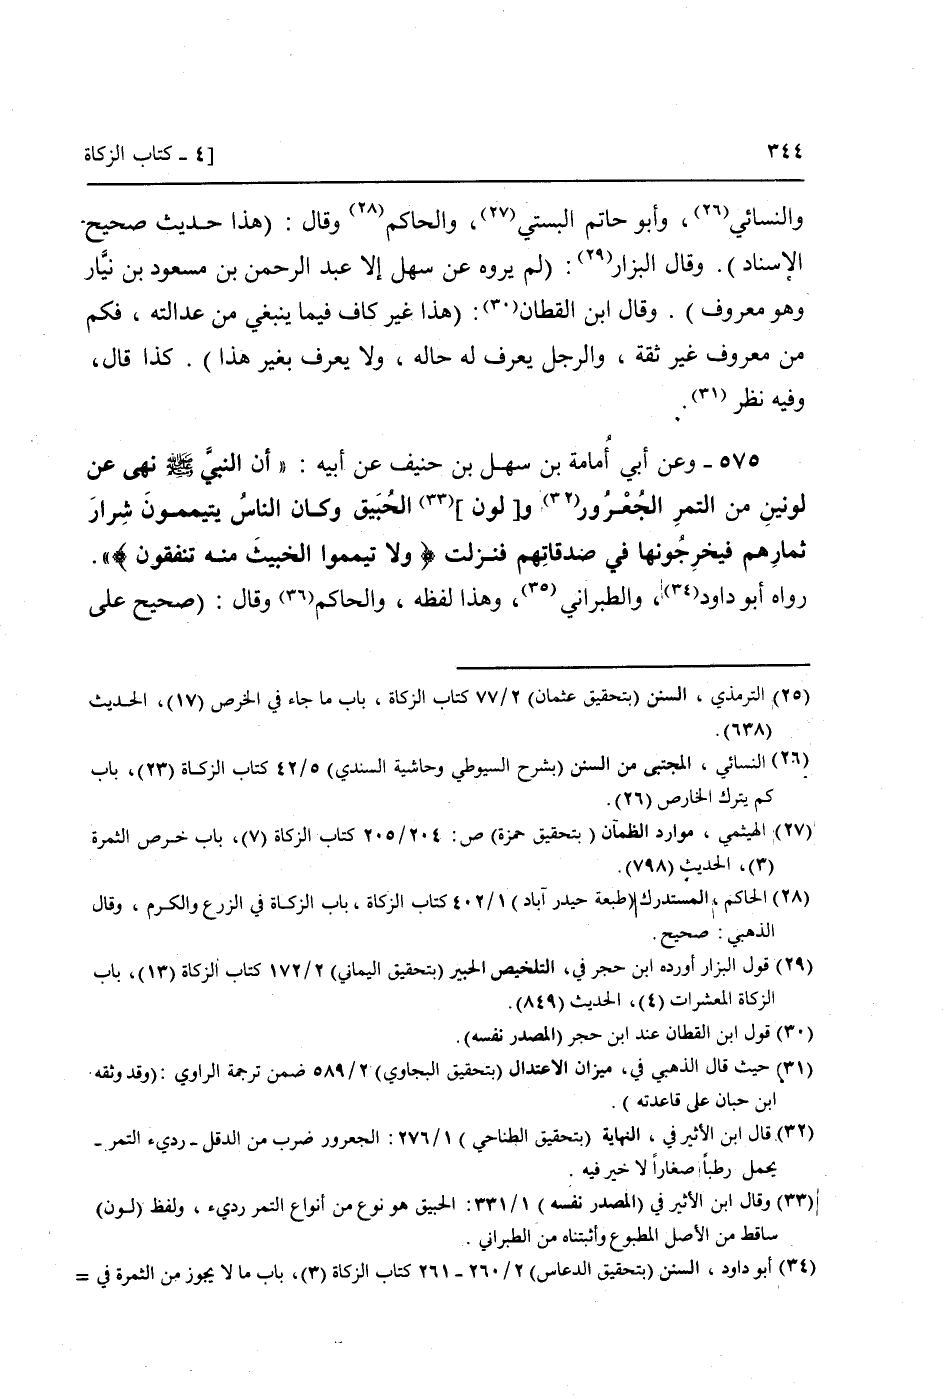 ٣٤٤
[٤ ـ كتاب الزكاة
والنسائي(٢٦)، وأبو حاتم البستي(٢٧)، والحاكم(٢٨) وقال : (هذا حديث صحيح
الإسناد). وقال البزار(٢٩): (لم يروه عن سهل إلا عبد الرحمن بن مسعود بن نيَّار
وهو معروف) . وقال ابن القطان(٣٠): (هذا غير كاف فيما ينبغي من عدالته ، فكم
من معروف غير ثقة ، والرجل يعرف له حاله ، ولا يعرف بغير هذا) . كذا قال،
وفيه نظر (٣١).
٥٧٥ ـ وعن أبي أُمامة بن سهل بن حنيف عن أبيه : « أن النبيَّ ﷺ نهى عن
لونينِ من التمرِ الجُعْرُور(٣٢) و[ لون ](٣٣) الحُبَيق وكان الناسُ يتيممونَ شِرارَ
ثمارِهم فيخرِجُونها في صدقاتِهم فنزلت ﴿ ولا تيمموا الخبيثَ منه تنفقون ﴾».
رواه أبو داود(٣٤)، والطبراني(٣٥)، وهذا لفظه ، والحاكم(٣٦) وقال : (صحيح على
(٢٥) الترمذي ، السنن (بتحقيق عثمان) ٧٧/٢ كتاب الزكاة ، باب ما جاء في الخرص (١٧)، الحديث
(٦٣٨).
(٢٦) النسائي ، المجتبى من السنن (بشرح السيوطي وحاشية السندي) ٤٢/٥ كتاب الزكاة (٢٣)، باب
كم يترك الخارص (٢٦).
(٢٧) الهيثمي ، موارد الظمآن ( بتحقيق حمزة) ص: ٢٠٥/٢٠٤ كتاب الزكاة (٧)، باب خرص الثمرة
(٣)، الحديث (٧٩٨).
(٢٨) الحاكم ، المستدرك (طبعة حيدر آباد) ٤٠٢/١ كتاب الزكاة ، باب الزكاة في الزرع والكرم ، وقال
الذهبي : صحيح.
(٢٩) قول البزار أورده ابن حجر في، التلخيص الحبير (بتحقيق اليماني) ١٧٢/٢ كتاب الزكاة (١٣)، باب
الزكاة المعشرات (٤)، الحديث (٨٤٩).
(٣٠) قول ابن القطان عند ابن حجر (المصدر نفسه).
(٣١) حيث قال الذهبي في، ميزان الاعتدال (بتحقيق البجاوي) ٥٨٩/٢ ضمن ترجمة الراوي :(وقد وثقه
ابن حبان على قاعدته ) .
(٣٢) قال ابن الأثير في ، النهاية (بتحقيق الطناحي ) ٢٧٦/١: الجعرور ضرب من الدقل ـ رديء التمر ـ
يحمل رطباً صغاراً لا خير فيه .
(٣٣) وقال ابن الأثير في (المصدر نفسه ) ٣٣١/١: الحبيق هو نوع من أنواع التمر رديء ، ولفظ (لون)
ساقط من الأصل المطبوع وأثبتناه من الطبراني .
(٣٤) أبو داود ، السنن (بتحقيق الدعاس) ٢٦٠/٢ ـ ٢٦١ كتاب الزكاة (٣)، باب ما لا يجوز من الثمرة في =